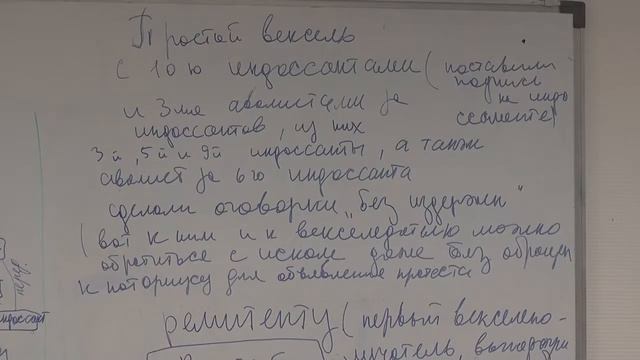 Простой вексель
с 10ю индоссантами (поставили
подпись
на индо
ссаменте)
и 3мя авалистами за
индоссантов, из них
3й, 5й и 9й индоссанты, а также
авалист за 6го индоссанта
сделали оговорки „без издержки"
(вот к ним и к векселедателю можно
обратиться с иском даже без обращен
к нотариусу для объявления протеста
ремитенту (первый векселепо-
лучатель,
индоссант